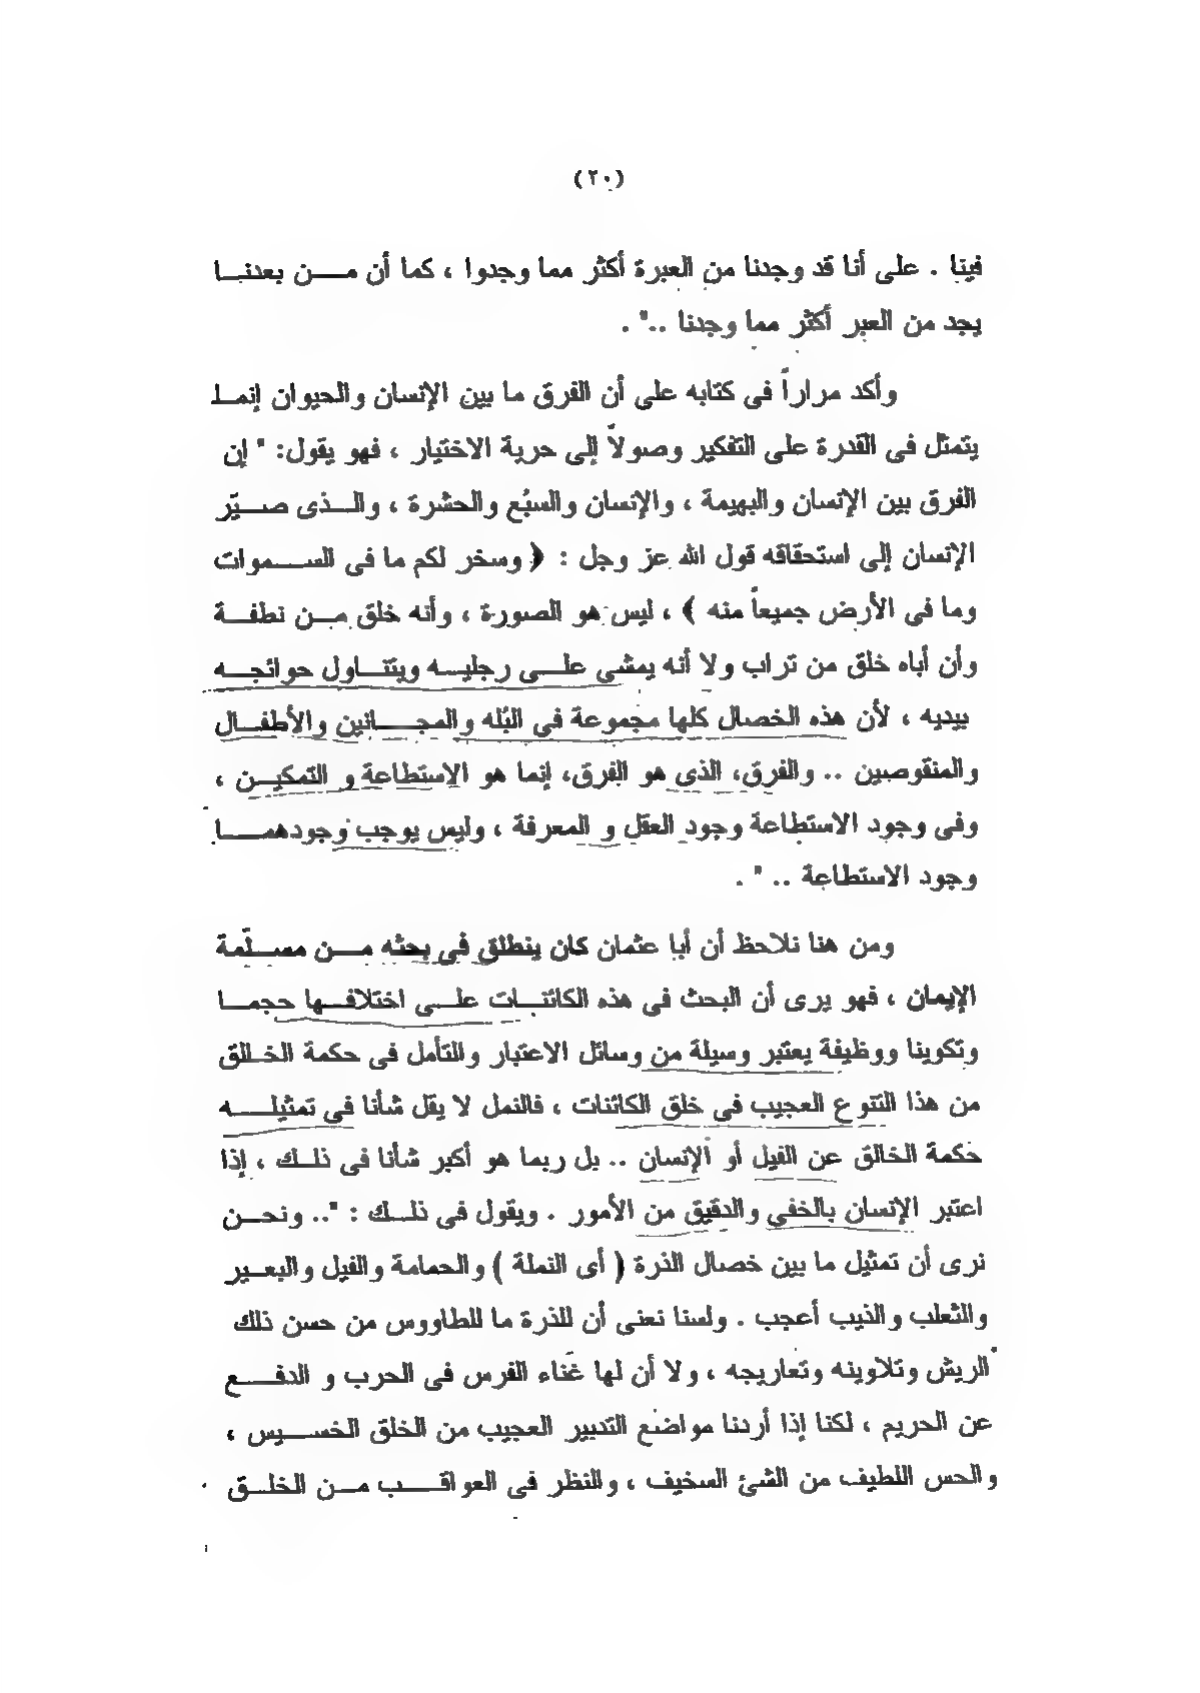 (٢٠)
فينا . على أنا قد وجدنا من العبرة أكثر مما وجدوا ، كما أن من بعدنا
يجد من العبر أكثر مما وجدنا .." .
وأكد مراراً فى كتابه على أن الفرق ما بين الإنسان والحيوان إنما
يتمثل فى القدرة على التفكير وصولاً إلى حرية الاختيار ، فهو يقول: " إن
الفرق بين الإنسان والبهيمة ، والإنسان والسبُع والحشرة ، والذى صيّر
الإنسان إلى استحقاقه قول الله عز وجل : ﴿ وسخر لكم ما فى السموات
وما فى الأرض جميعاً منه ﴾ ، ليس هو الصورة ، وأنه خلق من نطفة
وأن أباه خلق من تراب ولا أنه يمشى على رجليه ويتناول حوائجه
بيديه ، لأن هذه الخصال كلها مجموعة فى البُله والمجانين والأطفال
والمنقوصين .. والفرق، الذى هو الفرق، إنما هو الاستطاعة و التمكين ،
وفى وجود الاستطاعة وجود العقل و المعرفة ، وليس يوجب وجودهما
وجود الاستطاعة .. " .
ومن هنا نلاحظ أن أبا عثمان كان ينطلق فى بحثه من مسلّمة
الإيمان ، فهو يرى أن البحث فى هذه الكائنات على اختلافها حجما
وتكوينا ووظيفة يعتبر وسيلة من وسائل الاعتبار والتأمل فى حكمة الخالق
من هذا التنوع العجيب فى خلق الكائنات ، فالنمل لا يقل شأنا فى تمثيله
حكمة الخالق عن الفيل أو الإنسان .. بل ربما هو أكبر شأنا فى ذلك ، إذا
اعتبر الإنسان بالخفي والدقيق من الأمور . ويقول فى ذلك : ".. ونحن
نرى أن تمثيل ما بين خصال الذرة ( أى النملة ) والحمامة والفيل والبعير
والثعلب والذيب أعجب . ولسنا نعنى أن للذرة ما للطاووس من حسن ذلك
الريش وتلاوينه وتعاريجه ، ولا أن لها غَناء الفرس فى الحرب و الدفع
عن الحريم ، لكنا إذا أردنا مواضع التدبير العجيب من الخلق الخسيس ،
والحس اللطيف من الشئ السخيف ، والنظر فى العواقب من الخلق